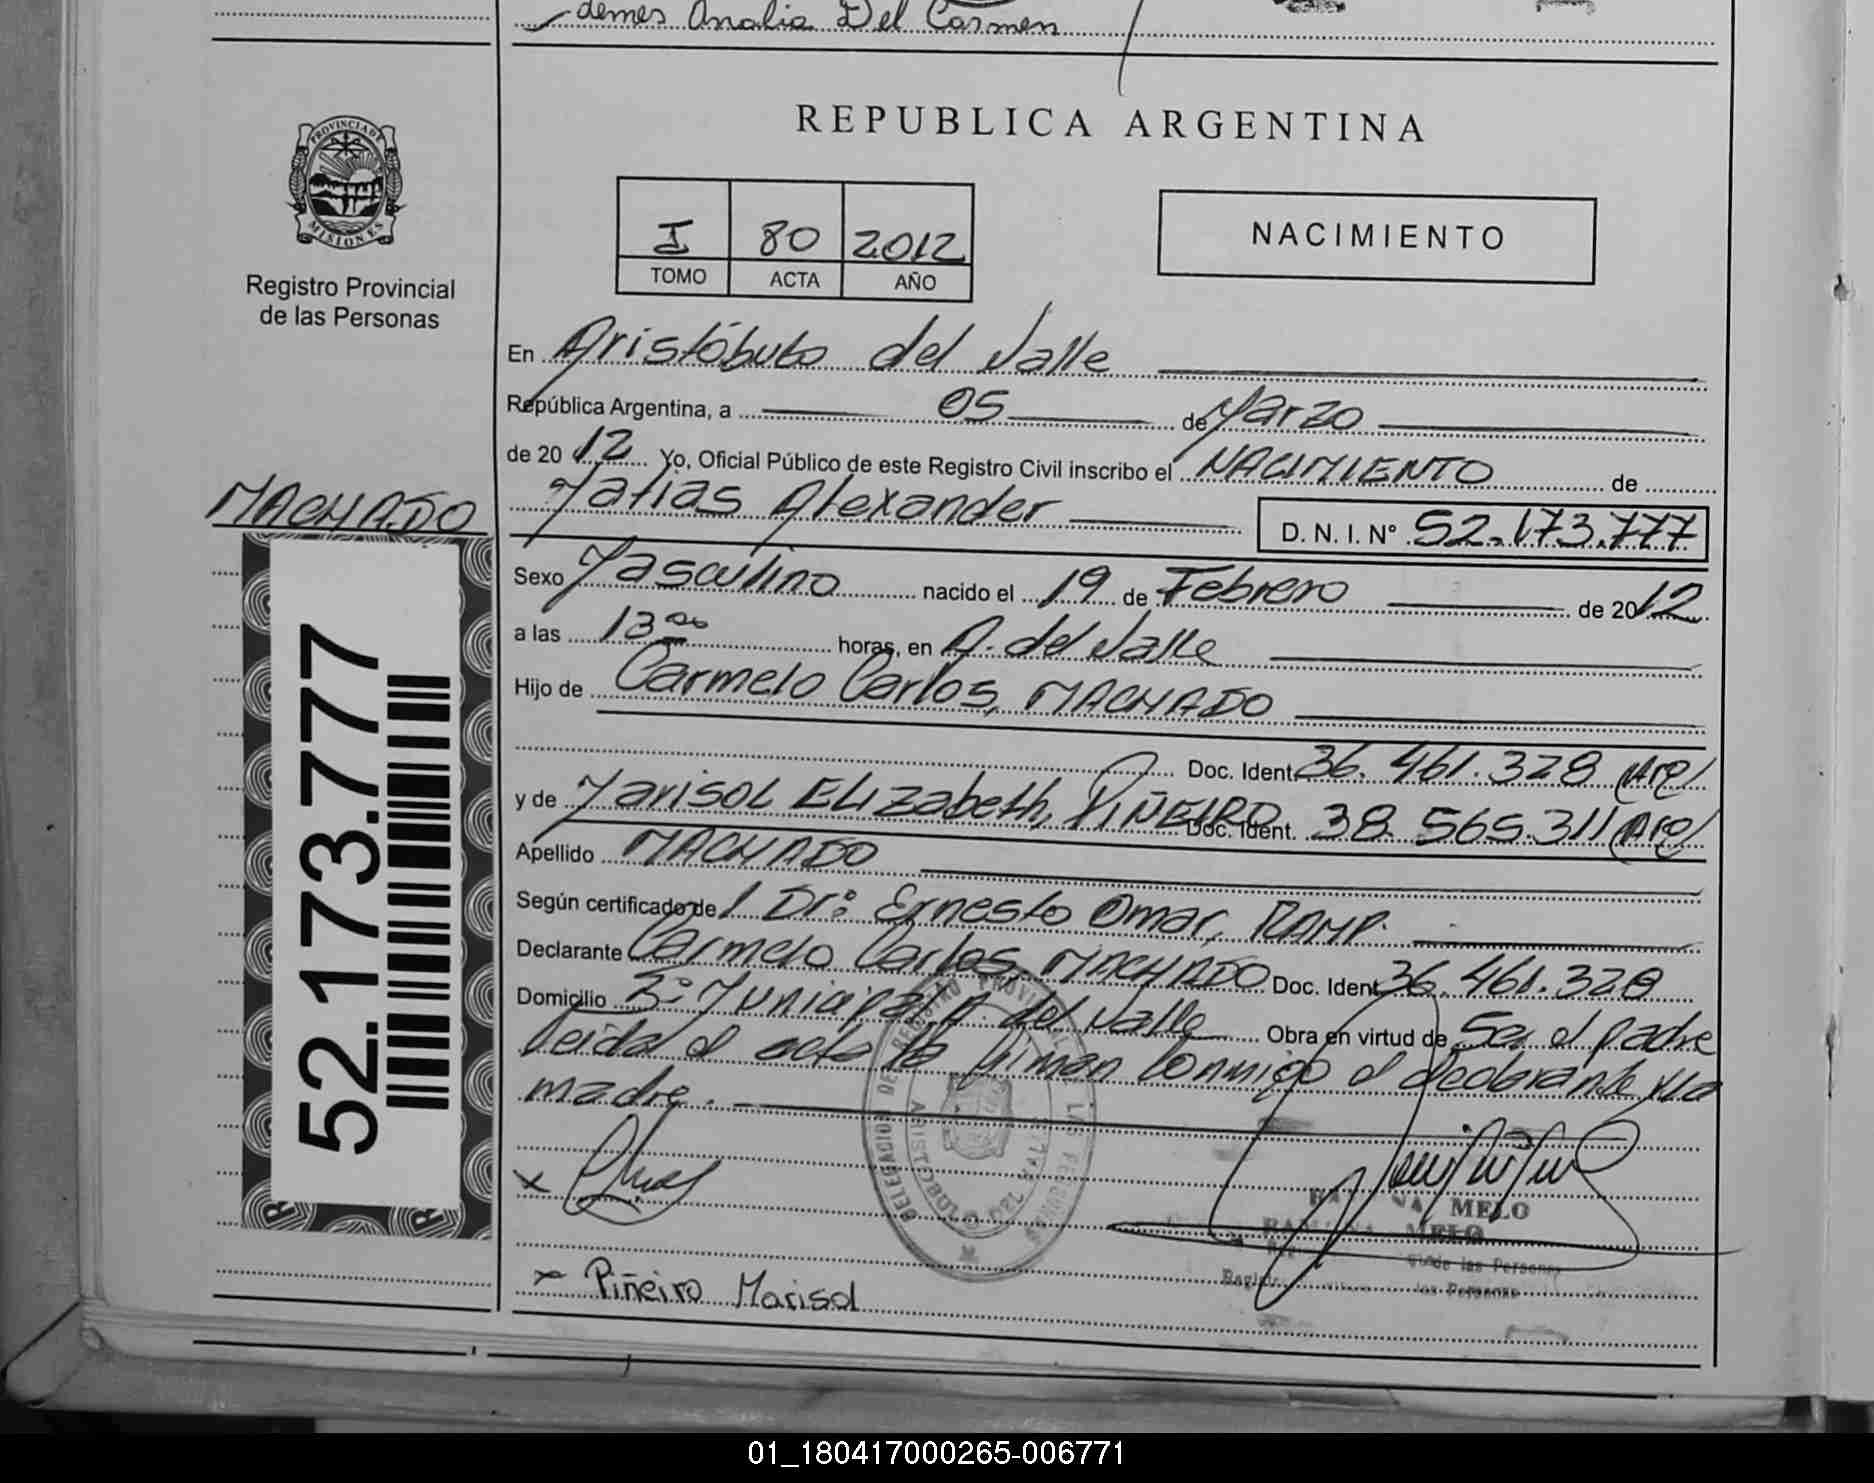 demes Analia Del Carmen
REPUBLICA ARGENTINA
PROVINCIA DE MISIONES
Registro Provincial
de las Personas
I 80 2012
TOMO ACTA AÑO
NACIMIENTO
En Aristóbulo del Valle
República Argentina, a 05 de Marzo
de 2012 Yo, Oficial Público de este Registro Civil inscribo el NACIMIENTO de
MACHADO
Matias Alexander D. N. I. Nº 52.173.777
Sexo Masculino nacido el 19 de Febrero de 2012
a las 13 00 horas, en A. del Valle
Hijo de Carmelo Carlos, MACHADO
Doc. Ident. 36.461.328 (Arg)
y de Marisol Elizabeth, PIÑEIRO Doc. Ident. 38.565.311 (Arg)
Apellido MACHADO
Según certificado de / Dr: Ernesto Omar, RAMP.
Declarante Carmelo Carlos, MACHADO Doc. Ident. 36.461.328
Domicilio Bº Municipal, A. del Valle Obra en virtud de Ser el padre
Leida el acta la firman conmigo el declarante y la
madre.
52.173.777
DELEGACION DEL REGISTRO PROVINCIAL DE LAS PERSONAS
ARISTOBULO DEL VALLE
MELO
MELO
de las Personas
las Personas
x Piñeiro Marisol
01_180417000265-006771